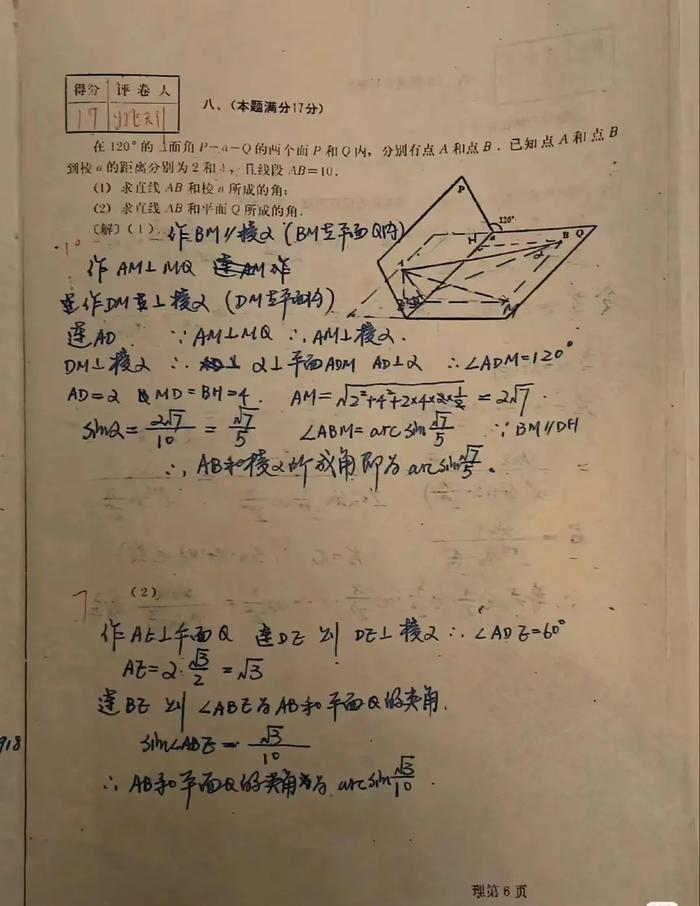 得分 评卷人
17
八、(本题满分17分)
在120°的二面角P-a-Q的两个面P和Q内,分别有点A和点B.已知点A和点B
到棱a的距离分别为2和4,且线段AB=10.
(1) 求直线AB和棱a所成的角;
(2) 求直线AB和平面Q所成的角.
P
120°
H a B Q
A
α
D M
〔解〕(1) 作BM∥棱α(BM在平面Q内)
10
作AM⊥MQ
作DM⊥棱α (DM在平面内)
连AD ∵AM⊥MQ ∴AM⊥棱α.
DM⊥棱α ∴ α⊥平面ADM AD⊥α ∴∠ADM=120°
AD=2 MD=BH=4. AM=√(2²+4²+2×4×2×1/2) =2√7.
sinα=2√7/10=√7/5 ∠ABM=arc sin √7/5 ∵BM∥DH
∴AB和棱α所成角即为arc sin √7/5.
7 (2)
作AE⊥平面Q 连DE 则 DE⊥棱α ∴∠ADE=60°
AE=2·√3/2=√3
连BE 则∠ABE为AB和平面Q的夹角.
sin∠ABE=√3/10
∴AB和平面Q的夹角为 arc sin √3/10.
918
理第6页